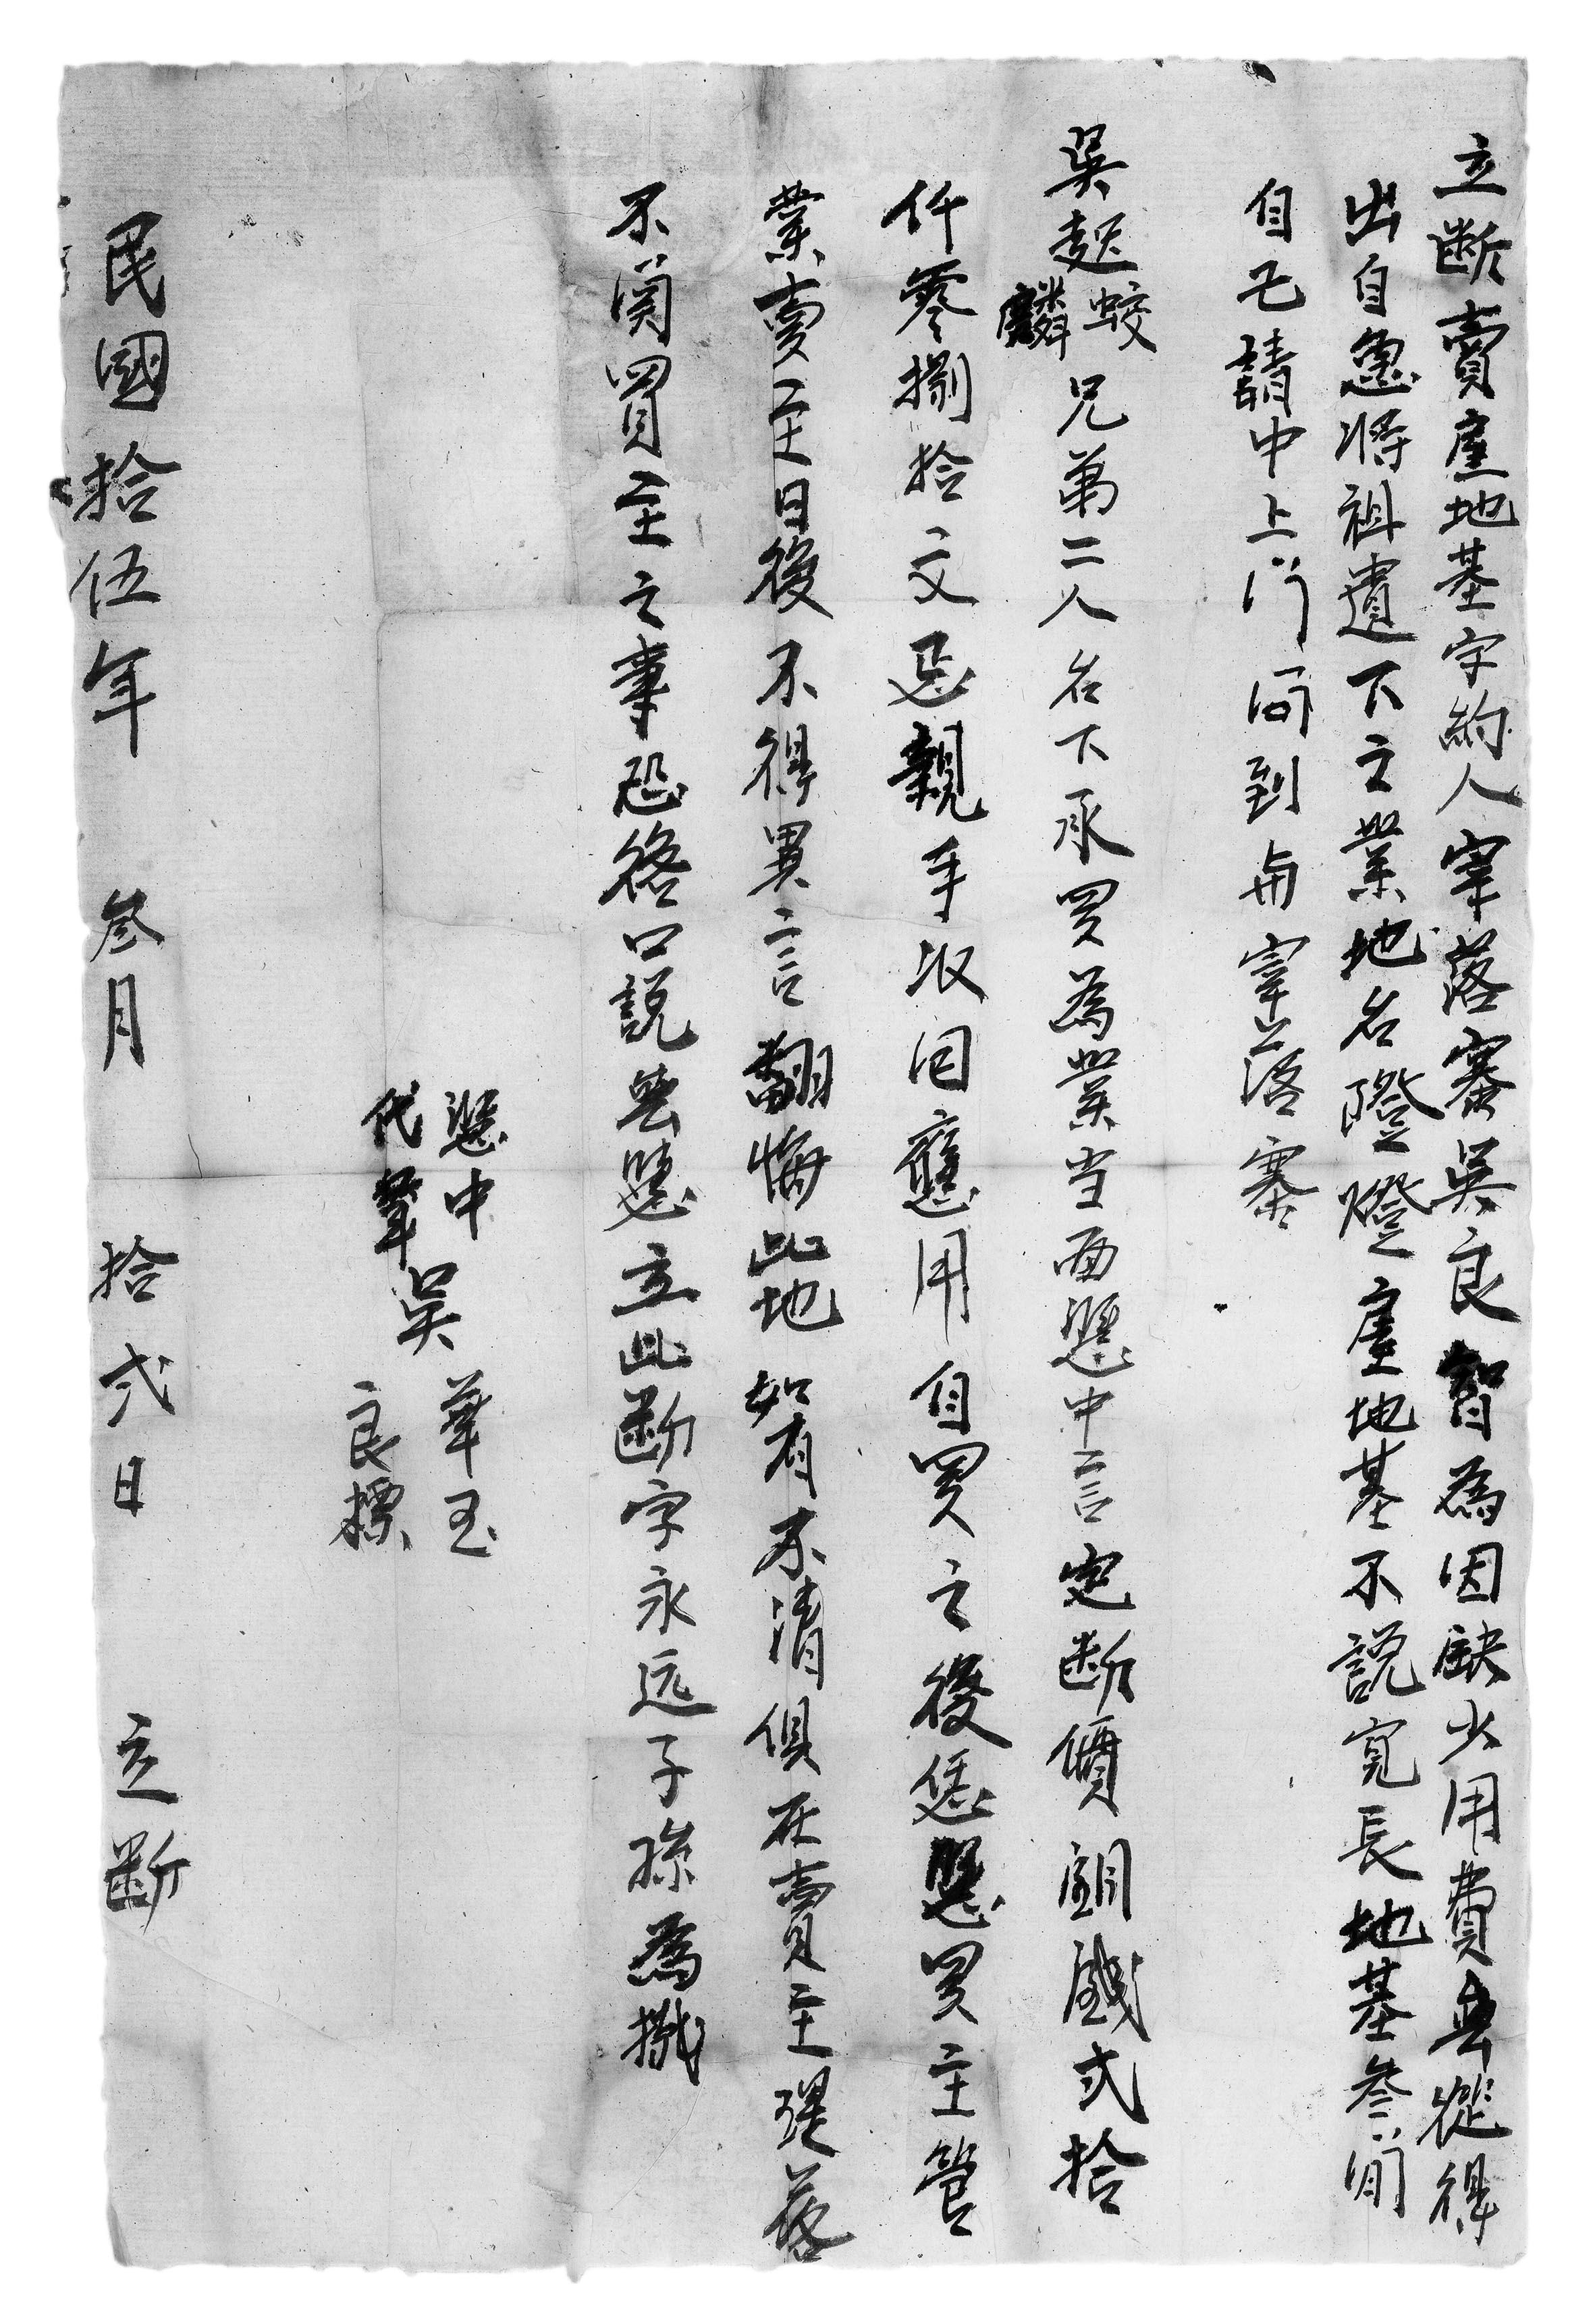 立断賣産地基字約人宰落寨吳良智為因缺少用費無從得
出自愿将祖遺下之業地名隥隥産地基不説寛長地基叁間
自己請中上门问到与宰落寨
吳起蛟麟兄弟二人名下承買為業当面憑中言定断價銅錢弍拾
仟零捌拾文足親手收回應用自買之後恁憑買主管
業賣主日後不得異言翻悔此地如有不清俱在賣主理落
不関買主之事恐後口説無憑立此断字永远子孫為據
憑中 吳華玉
代筆 良標
民國拾伍年 叁月 拾弍日 立断